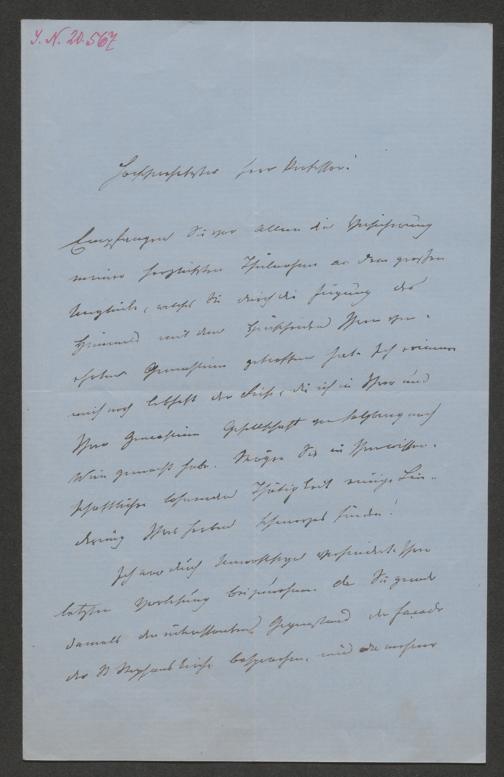 J. N. 20.567
Hochgeehrter Herr Professor!
Empfangen Sie vor Allem die Versicherung
meiner herzlichsten Theilnahme an dem großen
Unglücke, welches Sie durch die Fügung des
Himmels mit dem Hinscheiden Ihrer ver-
ehrten Gemahlin getroffen hat. Ich erinnere
mich noch lebhaft der Reise, die ich in Ihrer und
Ihrer Gemahlin Gesellschaft von Salzburg nach
Wien gemacht habe. Mögen Sie in Ihrer wissen-
schaftlichen lohnenden Thätigkeit einige Lin-
derung Ihres herben Schmerzes finden!
Ich war durch Unwohlsein verhindert Ihrer
letzten Vorlesung beizuwohnen, da Sie gerade
damals den interessanten Gegenstand der Façade
der St Stephanskirche besprachen, und die mehrere